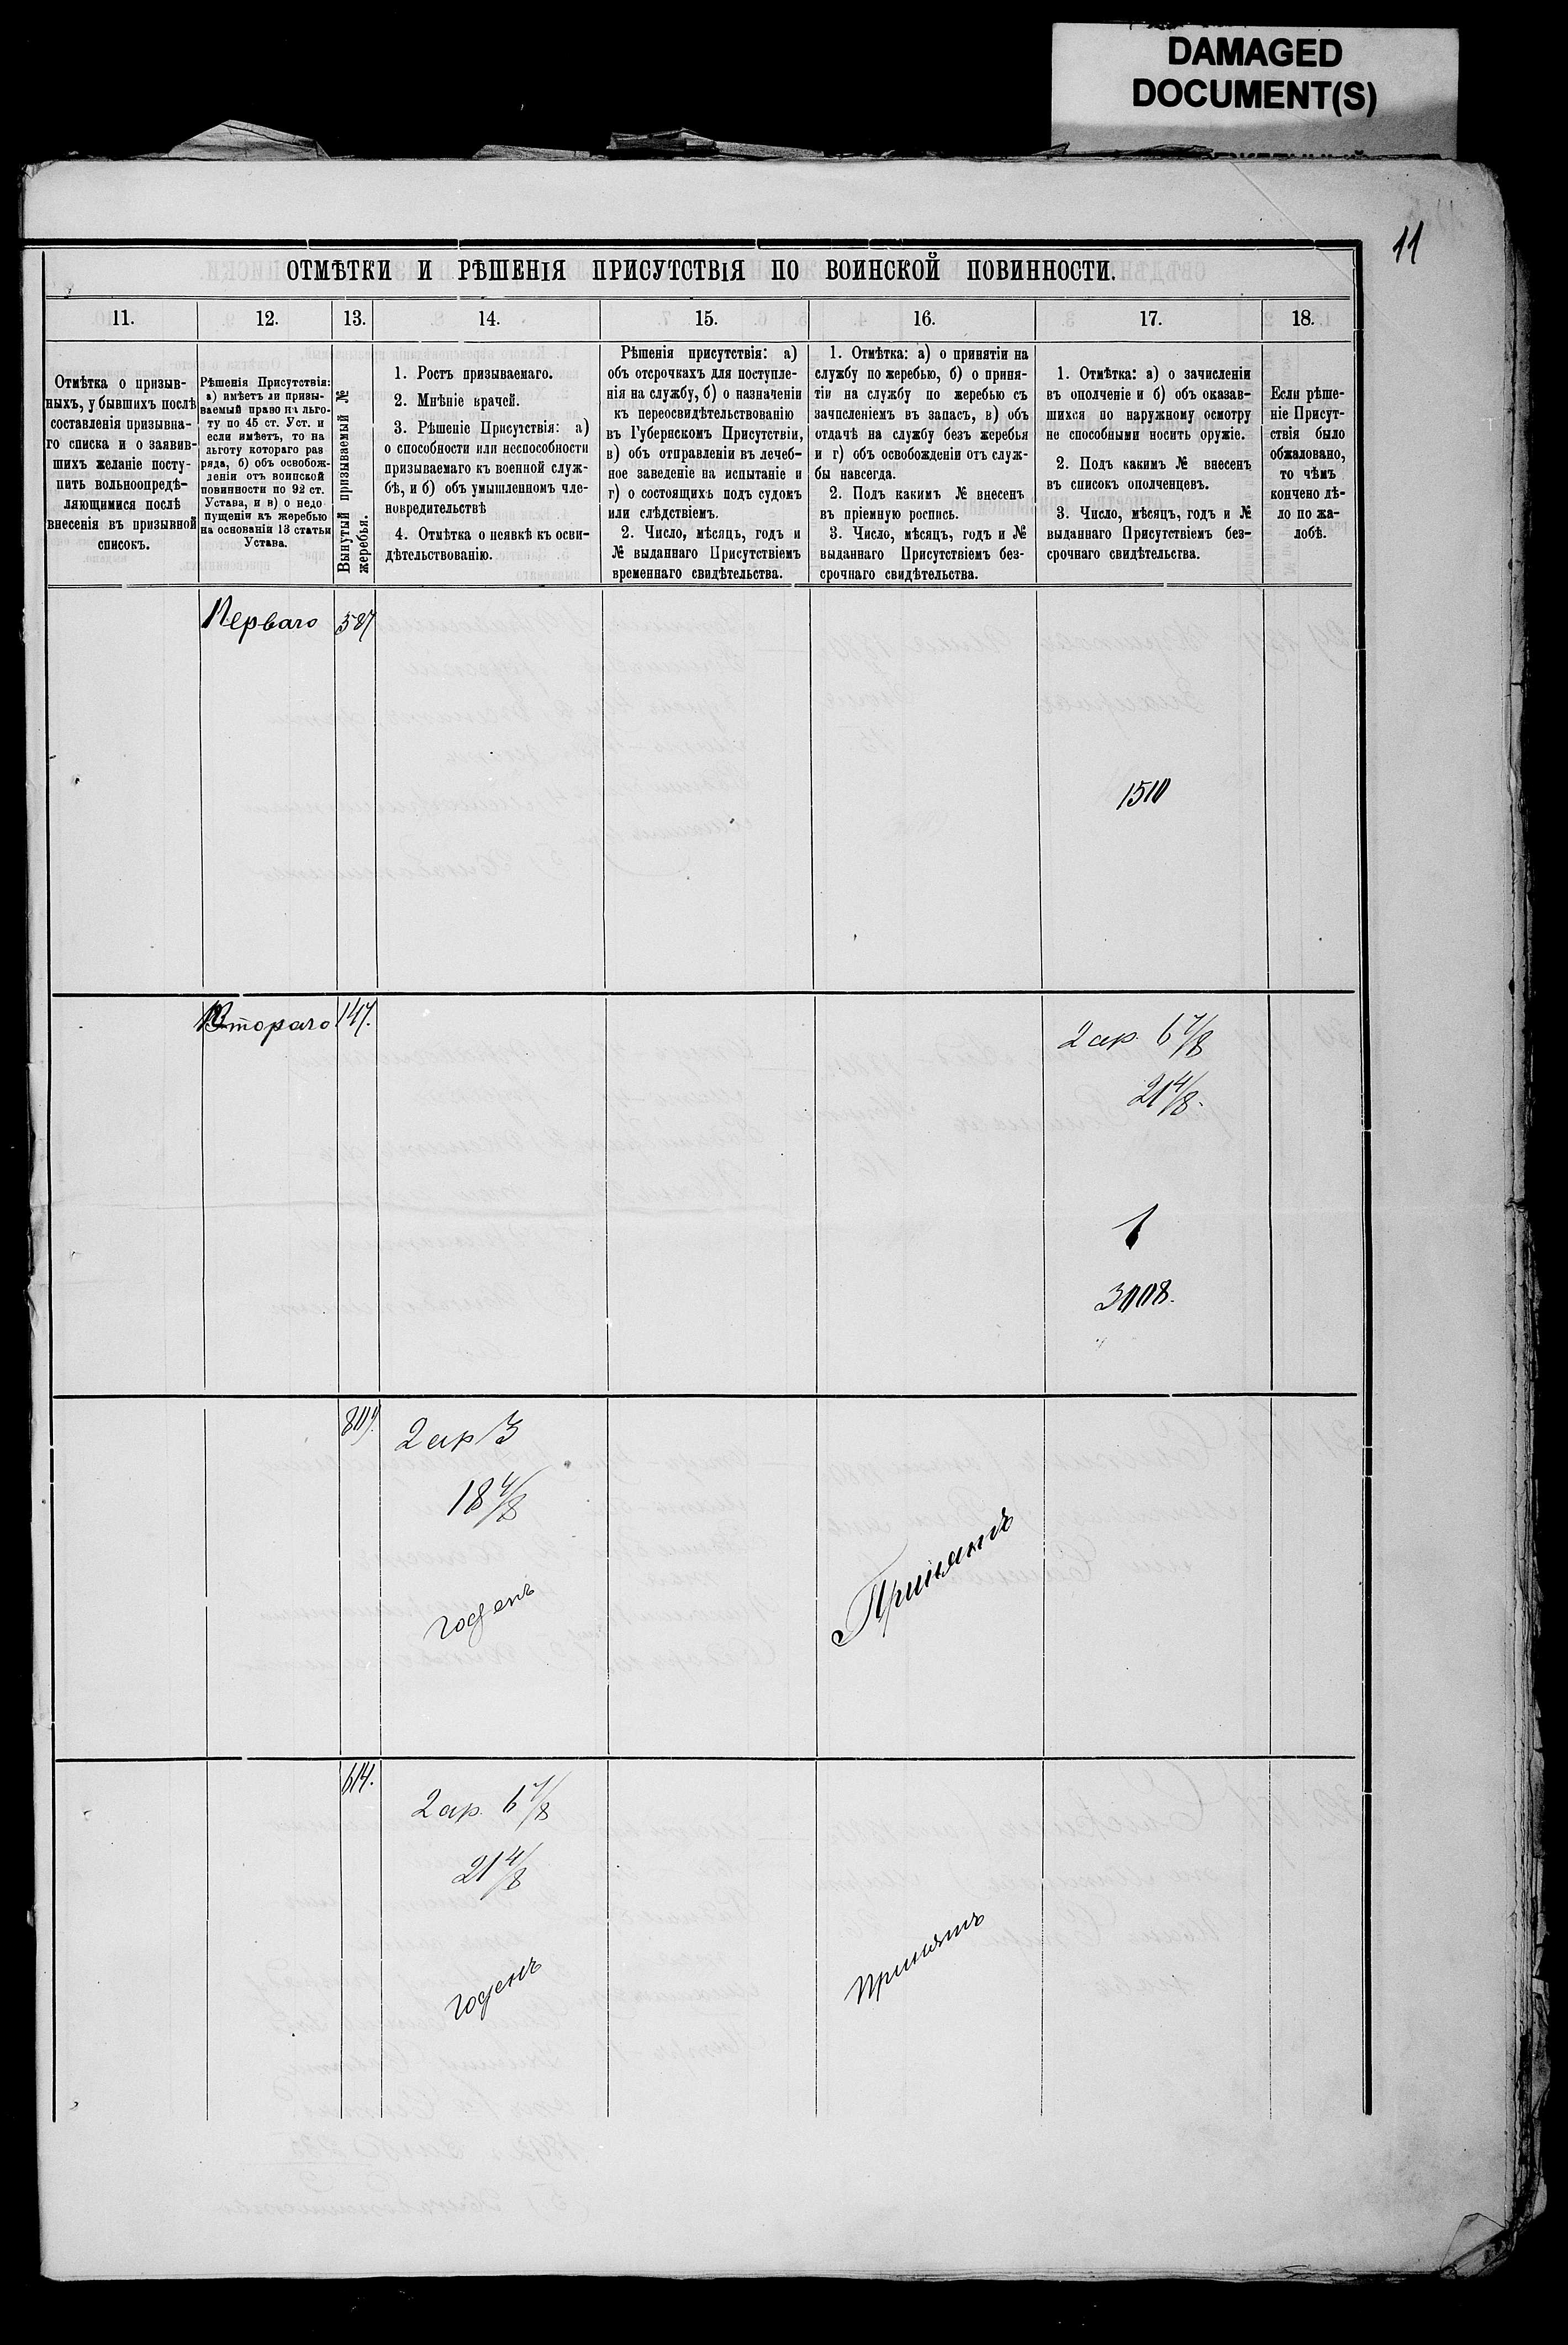 DAMAGED
DOCUMENT(S)
11
ОТМѢТКИ И РѢШЕНІЯ ПРИСУТСТВІЯ ПО ВОИНСКОЙ ПОВИННОСТИ.
11.
12.
13.
14.
15.
16.
17.
18.
Отмѣтка о призыв-
ныхъ, у бывшихъ послѣ
составленія призывна-
го списка и о заявив-
шихъ желаніе посту-
пить вольноопредѣ-
ляющимися послѣ
внесенія въ призывной
списокъ.
Рѣшенія Присутствія:
а) имѣетъ ли призы-
ваемый право на льго-
ту по 45 ст. Уст. и
если имѣетъ, то на
льготу котораго раз
ряда, б) объ освобож-
деніи отъ воинской
повинности по 92 ст.
Устава, и в) о недо
пущеніи къ жеребью
на основаніи 13 статьи
Устава.
Вынутый призываемый №
жеребья.
1. Ростъ призываемаго.
2. Мнѣніе врачей.
3. Рѣшеніе Присутствія: а)
о способности или неспособности
призываемаго къ военной служ-
бѣ, и б) объ умышленномъ чле-
новредительствѣ
4. Отмѣтка о неявкѣ къ осви-
дѣтельствованію.
Рѣшенія присутствія: а)
объ отсрочкахъ для поступле-
нія на службу, б) о назначеніи
къ переосвидѣтельствованію
въ Губернскомъ Присутствіи,
в) объ отправленіи въ лечеб-
ное заведеніе на испытаніе и
г) о состоящихъ подъ судомъ
или слѣдствіемъ.
2. Число, мѣсяцъ, годъ и
№ выданнаго Присутствіемъ
временнаго свидѣтельства.
1. Отмѣтка: а) о принятіи на
службу по жеребью, б) о приня-
тіи на службу по жеребью съ
зачисленіемъ въ запасъ, в) объ
отдачѣ на службу безъ жеребья
и г) объ освобожденіи отъ служ-
бы навсегда.
2. Подъ какимъ № внесенъ
въ пріемную роспись.
3. Число, мѣсяцъ, годъ и №
выданнаго Присутствіемъ без-
срочнаго свидѣтельства.
1. Отмѣтка: а) о зачисленіи
въ ополченіе и б) объ оказав-
шихся по наружному осмотру
не способными носить оружіе.
2. Подъ какимъ № внесенъ
въ списокъ ополченцевъ.
3. Число, мѣсяцъ, годъ и №
выданнаго Присутствіемъ без-
срочнаго свидѣтельства.
Если рѣше-
ніе Присут-
ствія было
обжаловано,
то чѣмъ
кончено дѣ-
ло по жа-
лобѣ.
Перваго
587
1510
Втораго
147.
2 ар. 6 7/8
21 4/8.
1
3008.
2 ар 3
18 4/8
годенъ
Принятъ
614.
2 ар. 6 7/8
21 4/8
годенъ
принятъ